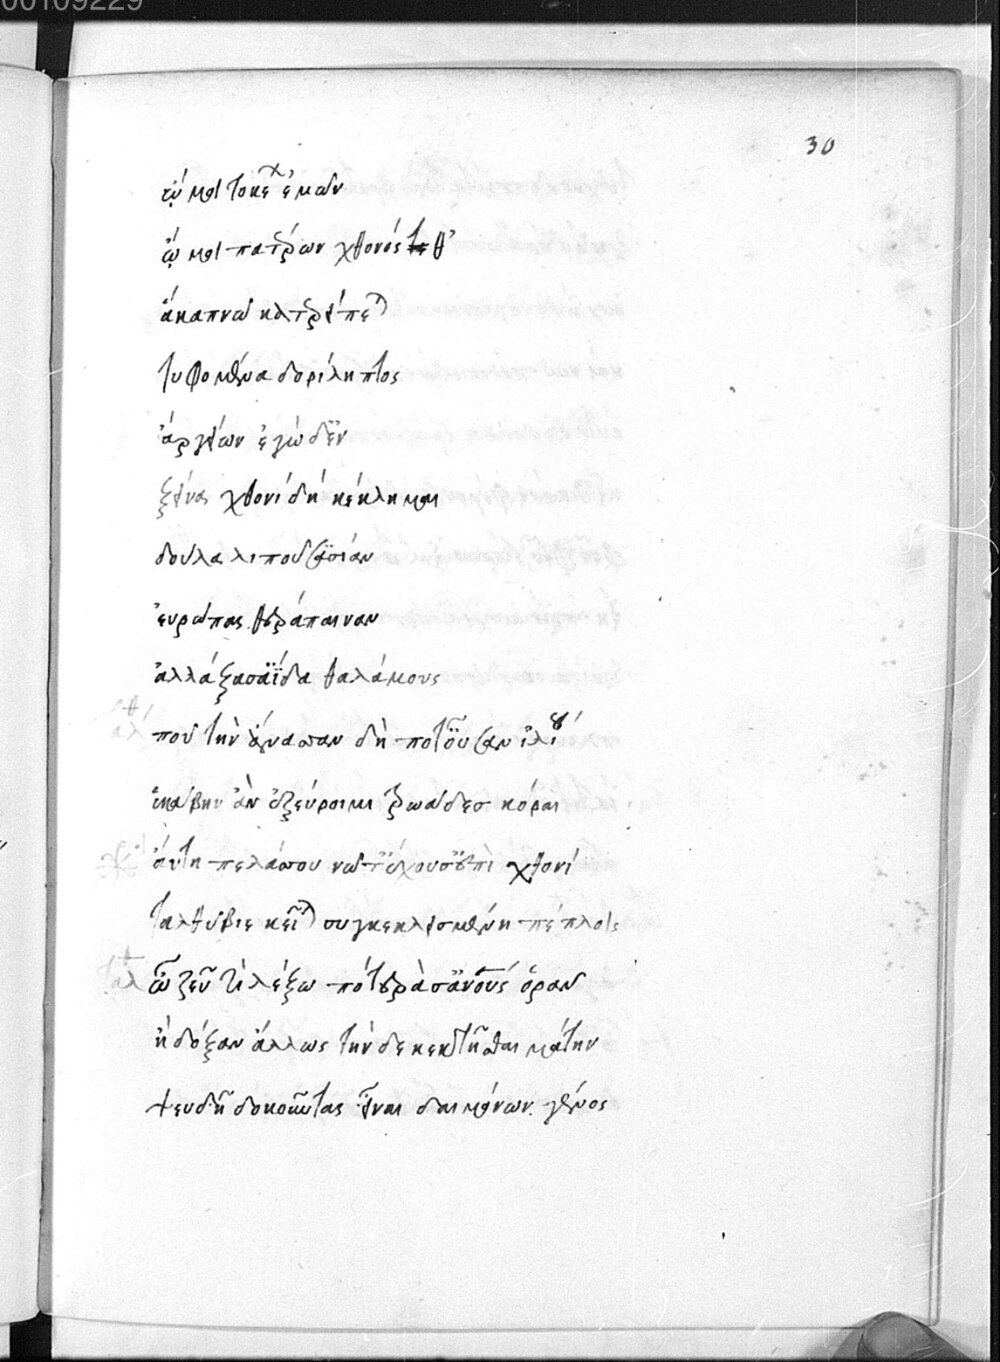 00109229
30
ὤ μοι τοκέων ἐμῶν
ὤ μοι πατρώων χθονός θ'
ἃ καπνῶ κατερείπεται
τυφομένα δορίληπτος
ἀργείων ἐγὼ δ' ἐν
ξείνα χθονὶ δὴ κέκλημαι
δούλα λιποῦσ' ἀσίαν
εὐρώπας θεράπαιναν
ἀλλάξασ' ἀΐδα θαλάμους
ποῦ τὴν ἄνασσαν δή ποτ' οὖσαν ἰλίου
ἑκάβην ἂν ἐξεύροιμι τρωάδες κόραι
αὕτη πέλας σου νῶτ' ἔχουσ' ἐπὶ χθονί
ταλθύβιε κεῖται συγκεκλεισμένη πέπλοις
ταλθ ὦ ζεῦ τί λέξω πότερά σ' ἀνθρώπους ὁρᾶν
ἢ δόξαν ἄλλως τήνδε κεκτῆσθαι μάτην
ψευδῆ δοκοῦντας εἶναι δαιμόνων γένος